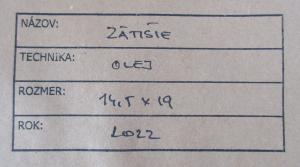 NÁZOV: ZÁTIŠIE
TECHNiKA: OLEJ
ROZMER: 14,5 x 19
ROK: 2022